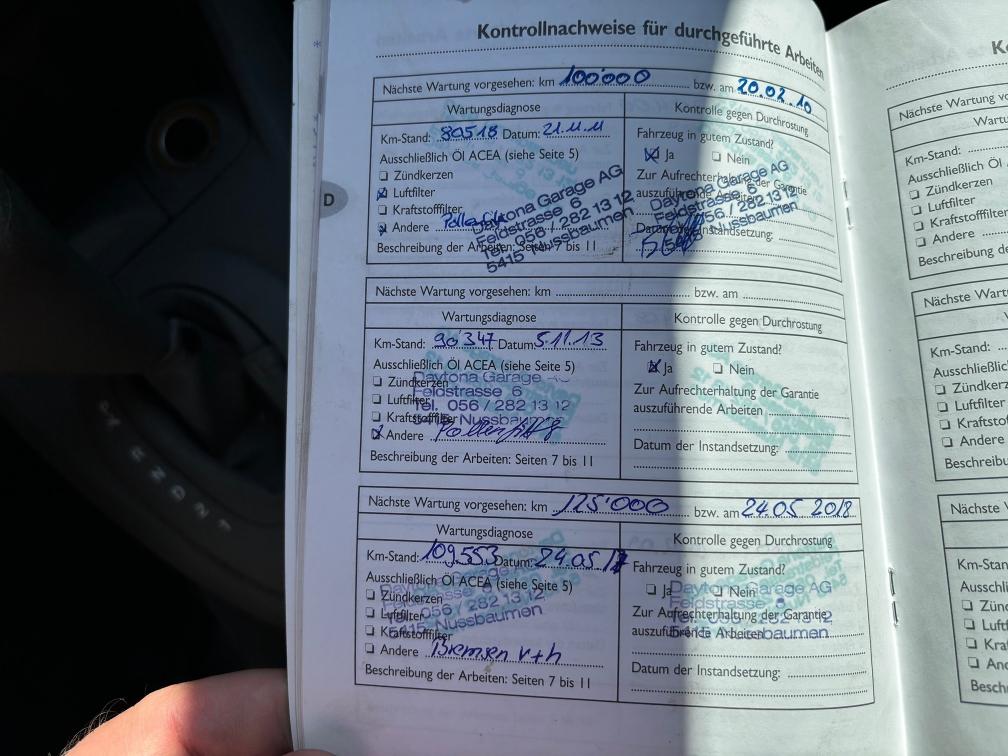 Kontrollnachweise für durchgeführte Arbeiten
Nächste Wartung vorgesehen: km 100'000 bzw. am 20.02.10
Wartungsdiagnose
Kontrolle gegen Durchrostung
Km-Stand: 80518 Datum: 21.11.11
Fahrzeug in gutem Zustand?
Ausschließlich Öl ACEA (siehe Seite 5)
Ja Nein
Zündkerzen
Zur Aufrechterhaltung der Garantie
Luftfilter
auszuführende Arbeiten
Kraftstofffilter
Andere
Datum der Instandsetzung:
Beschreibung der Arbeiten: Seiten 7 bis 11
Daytona Garage AG
Feldstrasse 6
Tel. 056 / 282 13 12
5415 Nussbaumen
Daytona Garage AG
Feldstrasse 6
Tel. 056 / 282 13 12
5415 Nussbaumen
D
Nächste Wartung vorgesehen: km bzw. am
Wartungsdiagnose
Kontrolle gegen Durchrostung
Km-Stand: 90'347 Datum: 5.11.13
Fahrzeug in gutem Zustand?
Ausschließlich Öl ACEA (siehe Seite 5)
Ja Nein
Zündkerzen
Zur Aufrechterhaltung der Garantie
Luftfilter
auszuführende Arbeiten
Kraftstofffilter
Andere
Datum der Instandsetzung:
Beschreibung der Arbeiten: Seiten 7 bis 11
Daytona Garage AG
Feldstrasse 6
Tel. 056 / 282 13 12
5415 Nussbaumen
Nächste Wartung vorgesehen: km 125'000 bzw. am 24.05 2018
Wartungsdiagnose
Kontrolle gegen Durchrostung
Km-Stand: 109553 Datum: 24.05.17
Fahrzeug in gutem Zustand?
Ausschließlich Öl ACEA (siehe Seite 5)
Ja Nein
Zündkerzen
Zur Aufrechterhaltung der Garantie
Luftfilter
auszuführende Arbeiten
Kraftstofffilter
Andere Bremsen v+h
Datum der Instandsetzung:
Beschreibung der Arbeiten: Seiten 7 bis 11
Daytona Garage AG
Feldstrasse 6
Tel. 056 / 282 13 12
5415 Nussbaumen
Daytona Garage AG
Feldstrasse 6
Tel. 056 / 282 13 12
5415 Nussbaumen